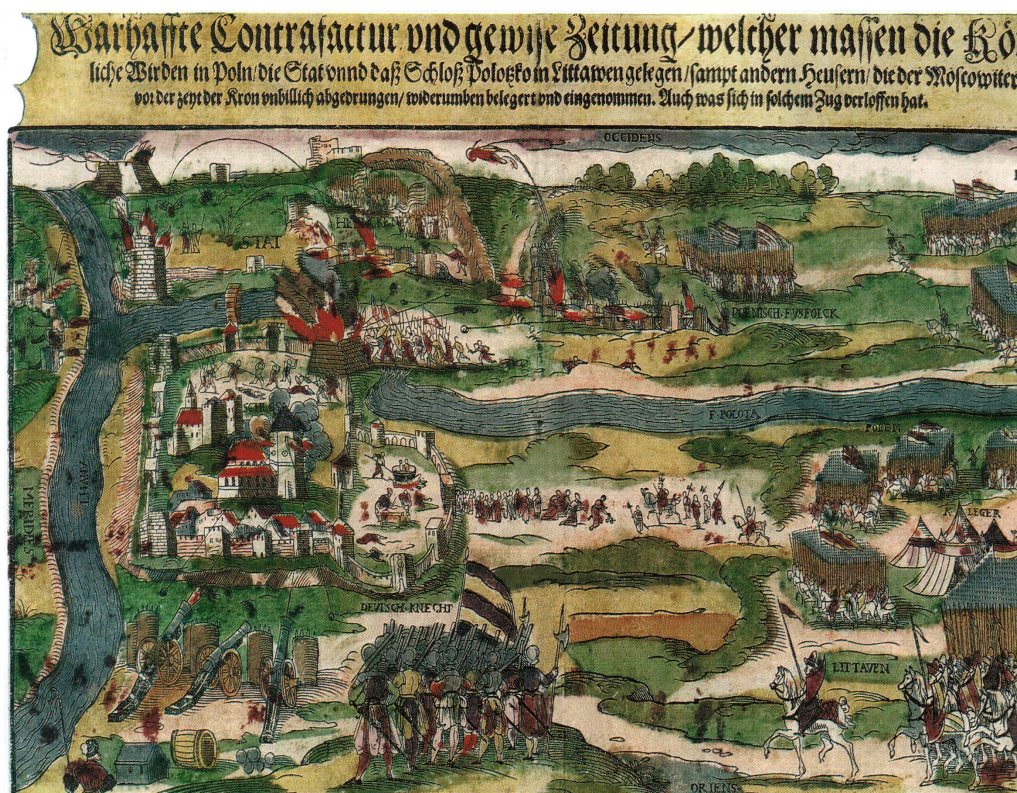 Warhaffte Contrafactur vnd gewisse Zeitung/ welcher massen die Kö
liche Wirden in Poln/ die Stat vnnd daß Schloß Polotzko in Littawen gelegen/ sampt andern Heusern/ die der Moscowiter
vor der zeyt der Kron vnbillich abgedrungen/ widerumben belegert vnd eingenommen. Auch was sich in solchem Zug verloffen hat.
OCCIDENS
STAT
POLNISCH·FVSFOLCK
F·POLOTA
POLEN
SCHLOS
MERIDIES
LEGER
DEVTSCH·KNECHT
LITTAVEN
ORIENS